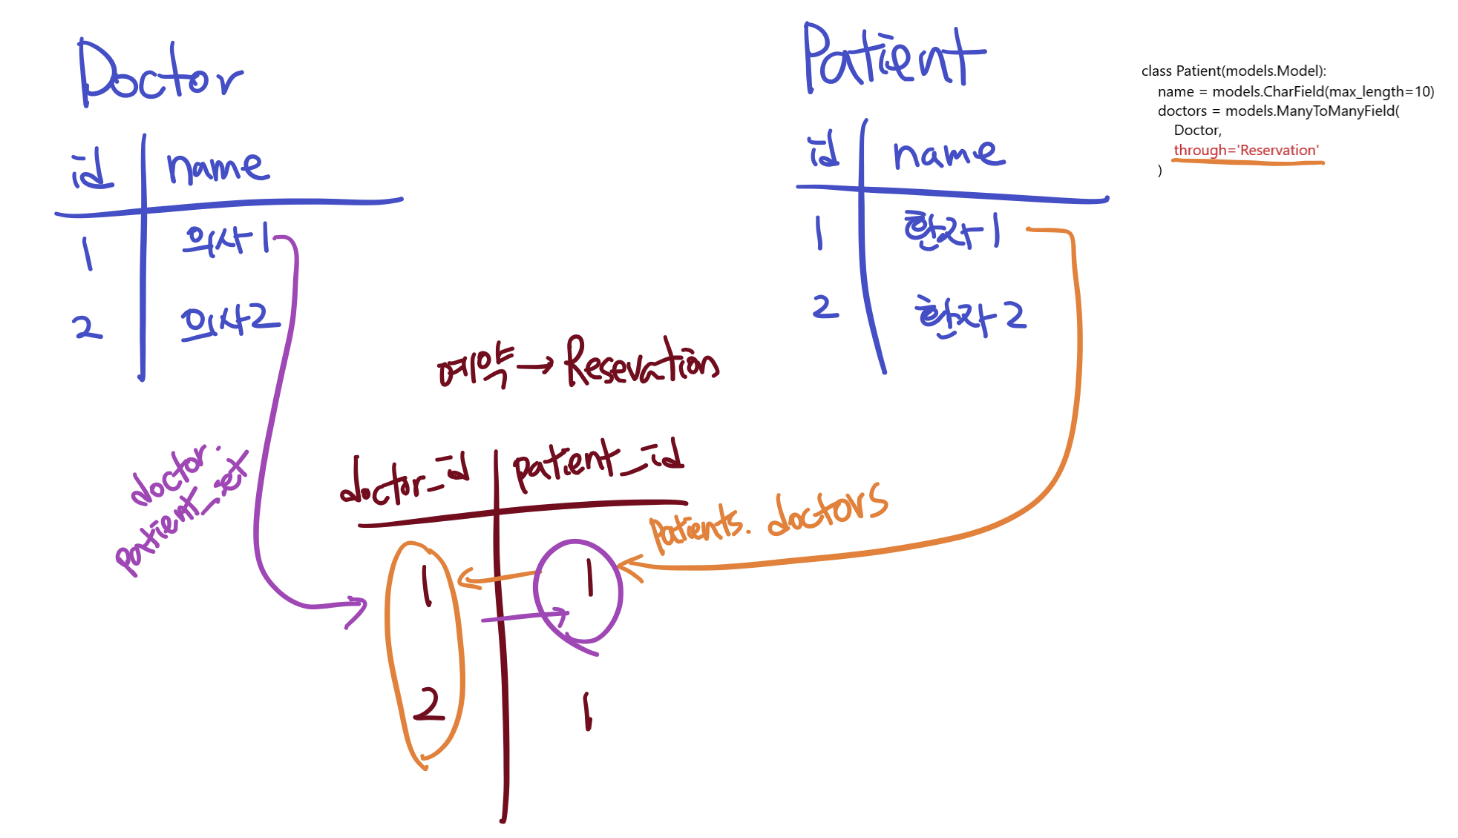 Doctor
id name
1 의사1
2 의사2
Patient
id name
1 환자1
2 환자2
class Patient(models.Model):
name = models.CharField(max_length=10)
doctors = models.ManyToManyField(
Doctor,
through='Reservation'
)
예약→Resevation
doctor_id patient_id
1 1
2 1
doctor.
patient_set
Patients. doctors